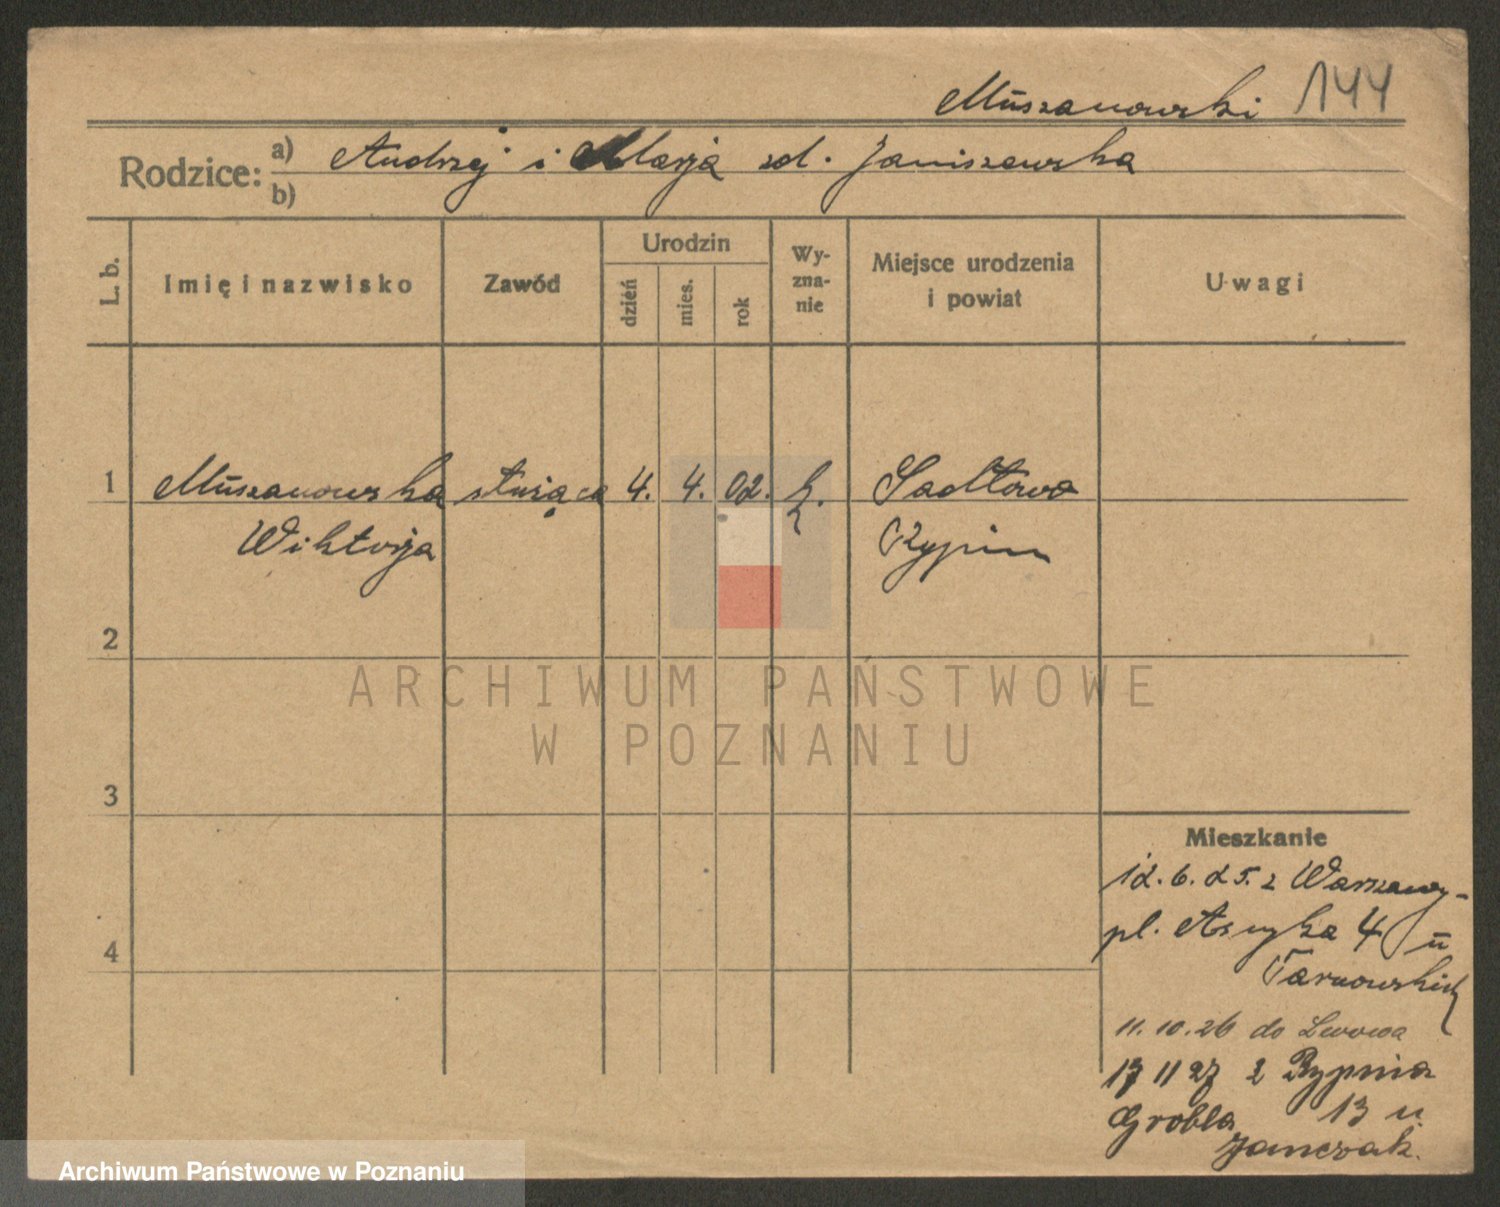 Muszanowski 144
Rodzice: a) Andrzej i Marja zd. Janiszewska
b)
L. b. Imię i nazwisko Zawód Urodzin dzień mies. rok Wy-zna-nie Miejsce urodzenia i powiat Uwagi
1 Muszanowska służąca 4. 4. 02. k. Sadłowo
Wiktorja Rypin
2
3
4
Mieszkanie
12. 6. 25. z Warszawy-
pl. Asnyka 4 u
Tarnowskich
11. 10. 26 do Lwowa
17 11 27 z Rypnia
Grobla 13 u.
Janczak.
ARCHIWUM PAŃSTWOWE
W POZNANIU
Archiwum Państwowe w Poznaniu